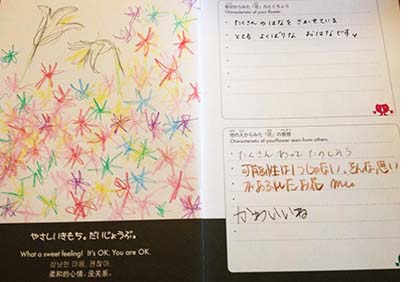 やさしいきもち。だいじょうぶ。
What a sweet feeling! It's OK. You are OK.
상냥한 마음, 괜찮아.
柔和的心情，没关系。
自分からみた「花」のとくちょう
Characteristic of your flower
たくさんのはなを さかせている
とても よくばりな おはなです
他の人からみた「花」の感想
Characteristic of yourflower seen from others
たくさん わって たのしそう
可能性は1つじゃない、そんな思い
があるんだね
かわいいね